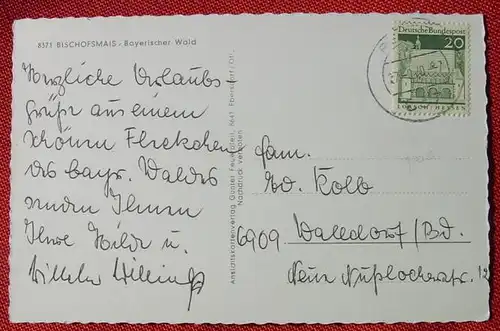 8371 BISCHOFSMAIS - Bayerischer Wald
Herzliche Urlaubs-
grüße aus einem
schönen Fleckchen
des bayr. Waldes
senden Ihnen
Ihre Hilde u.
Wilhelm
Ansichtskartenverlag Gustav 8641
Nachdruck verboten
Deutsche Bundespost
20
LORSCH · HESSEN
Fam.
Ed. Kolb
6909 Walldorf/Bd.
Neue Nußlocherstr. 12